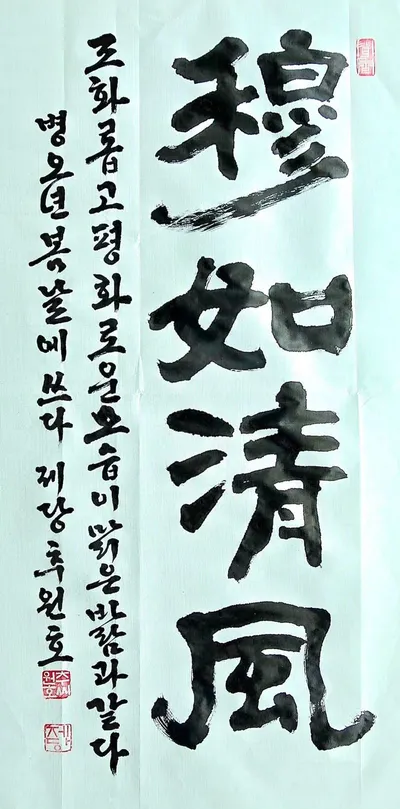 穆如清風
조화롭고 평화로운 모습이 맑은 바람과 같다
병오년 봄날에 쓰다 제당 추원호